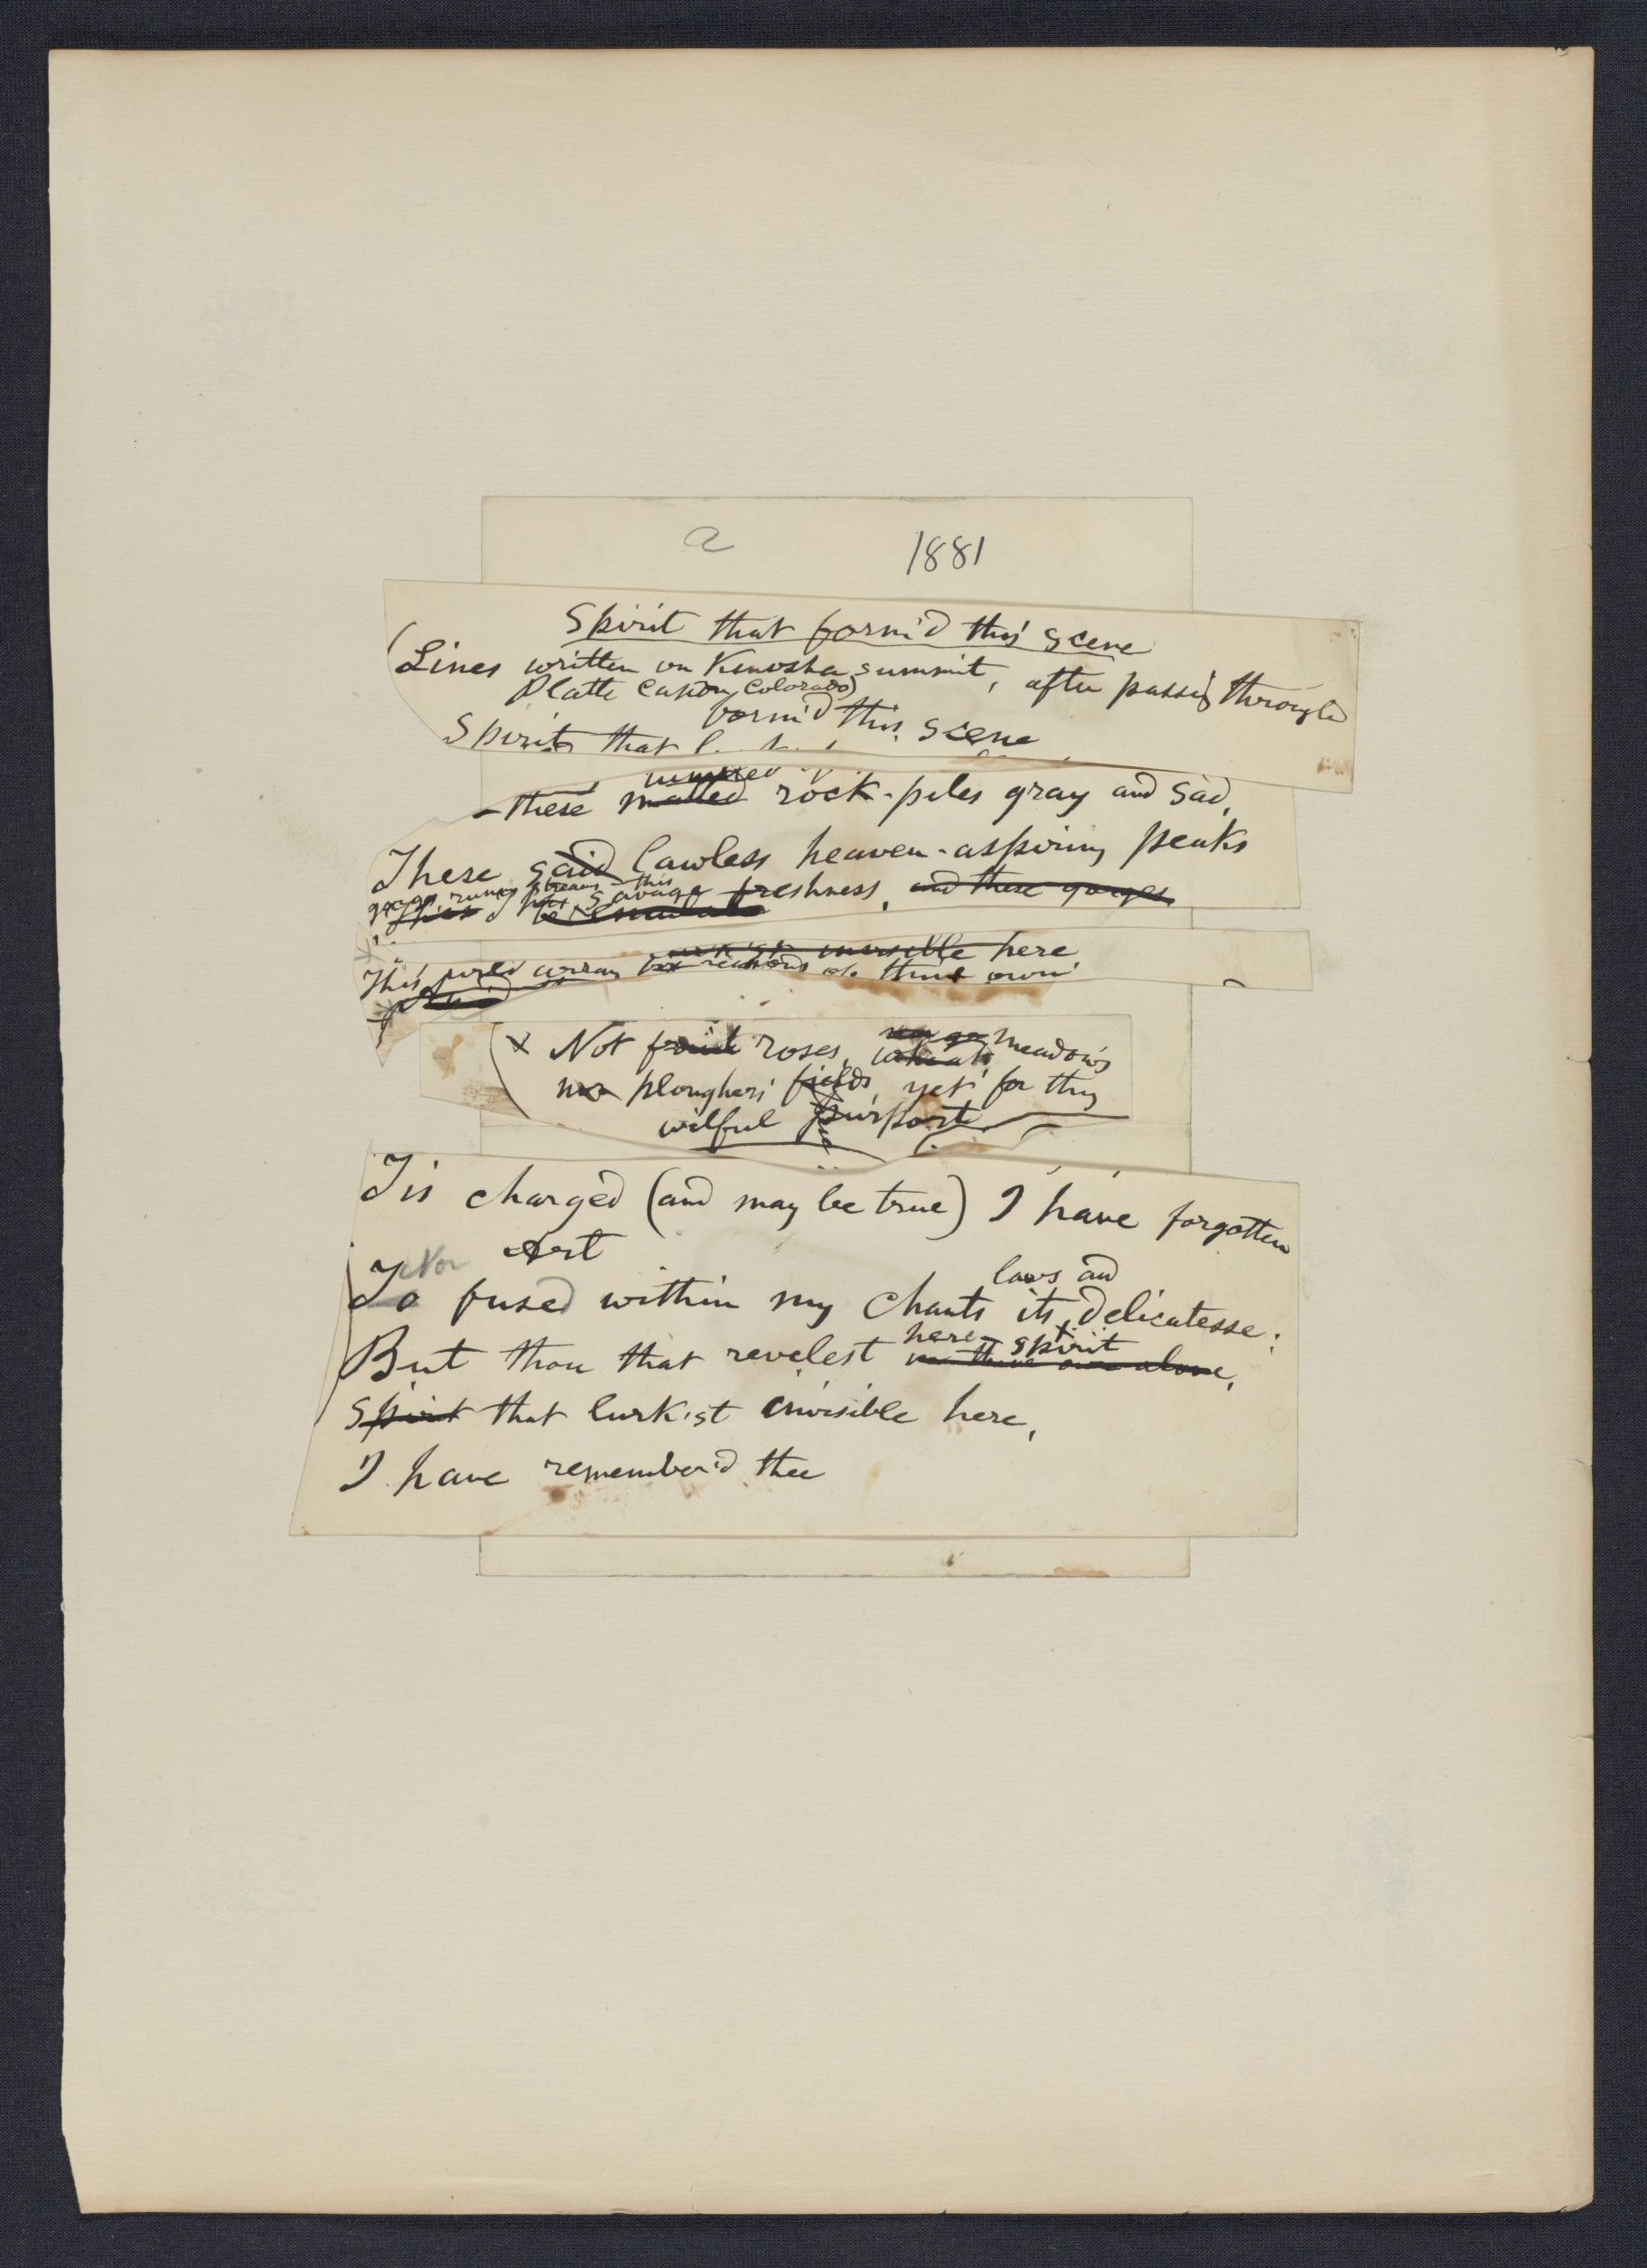 a 1881
Spirit that form'd this scene
(Lines written on Kenosha summit, after passing through
Platte Cañon, Colorado)
form'd this scene
Spirit that
these matted rock-piles gray and sad,
These said lawless heaven-aspiring peaks
gorges, running streams this
savage freshness, and these gorges
invisible here,
This wild array for reasons of thine own
Not fruit roses, wheat, meadows
nor ploughers' fields, yet for thy
wilful purport
Tis charged (and may be true) I have forgotten
Art
Nor laws and
To fused within my chants its delicatesse;
here spirit
But thou that revelest in thine own alone,
Spirit that lurk'st invisible here,
I have remember'd thee